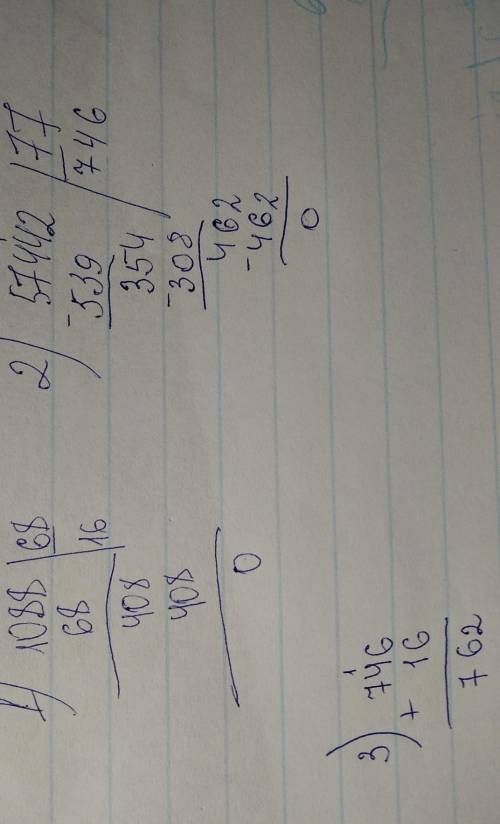 1) 1088 | 68
68 | 16
408
408
0
2) 57442 | 77
-539 | 746
354
-308
462
-462
0
3) 746
+ 16
762